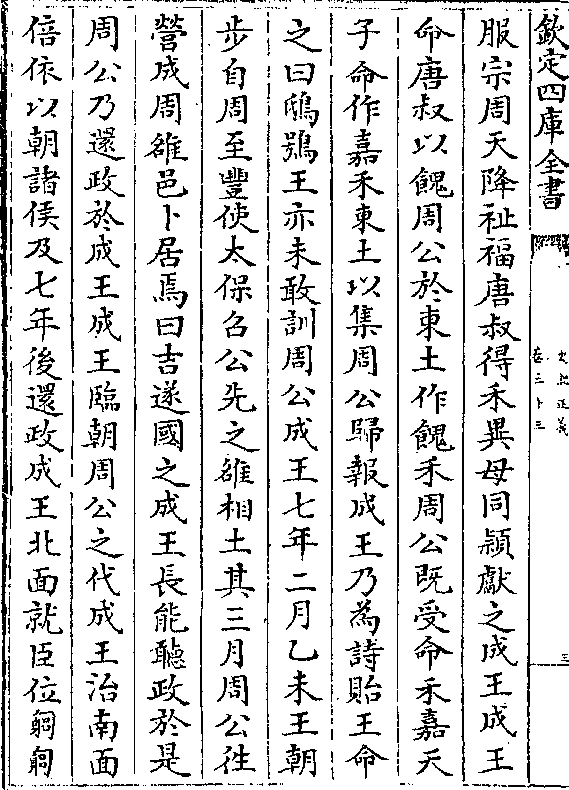 欽定四庫全書
史記正義
卷三十三
三
服宗周天降祉福唐叔得禾異母同穎獻之成王成王
命唐叔以餽周公於東土作餽禾周公既受命禾嘉天
子命作嘉禾東土以集周公歸報成王乃為詩貽王命
之曰鴟鴞王亦未敢訓周公成王七年二月乙未王朝
步自周至豐使太保召公先之雒相土其三月周公徃
營成周雒邑卜居焉曰吉遂國之成王長能聽政於是
周公乃還政於成王成王臨朝周公之代成王治南面
倍依以朝諸侯及七年後還政成王北面就臣位匔匔